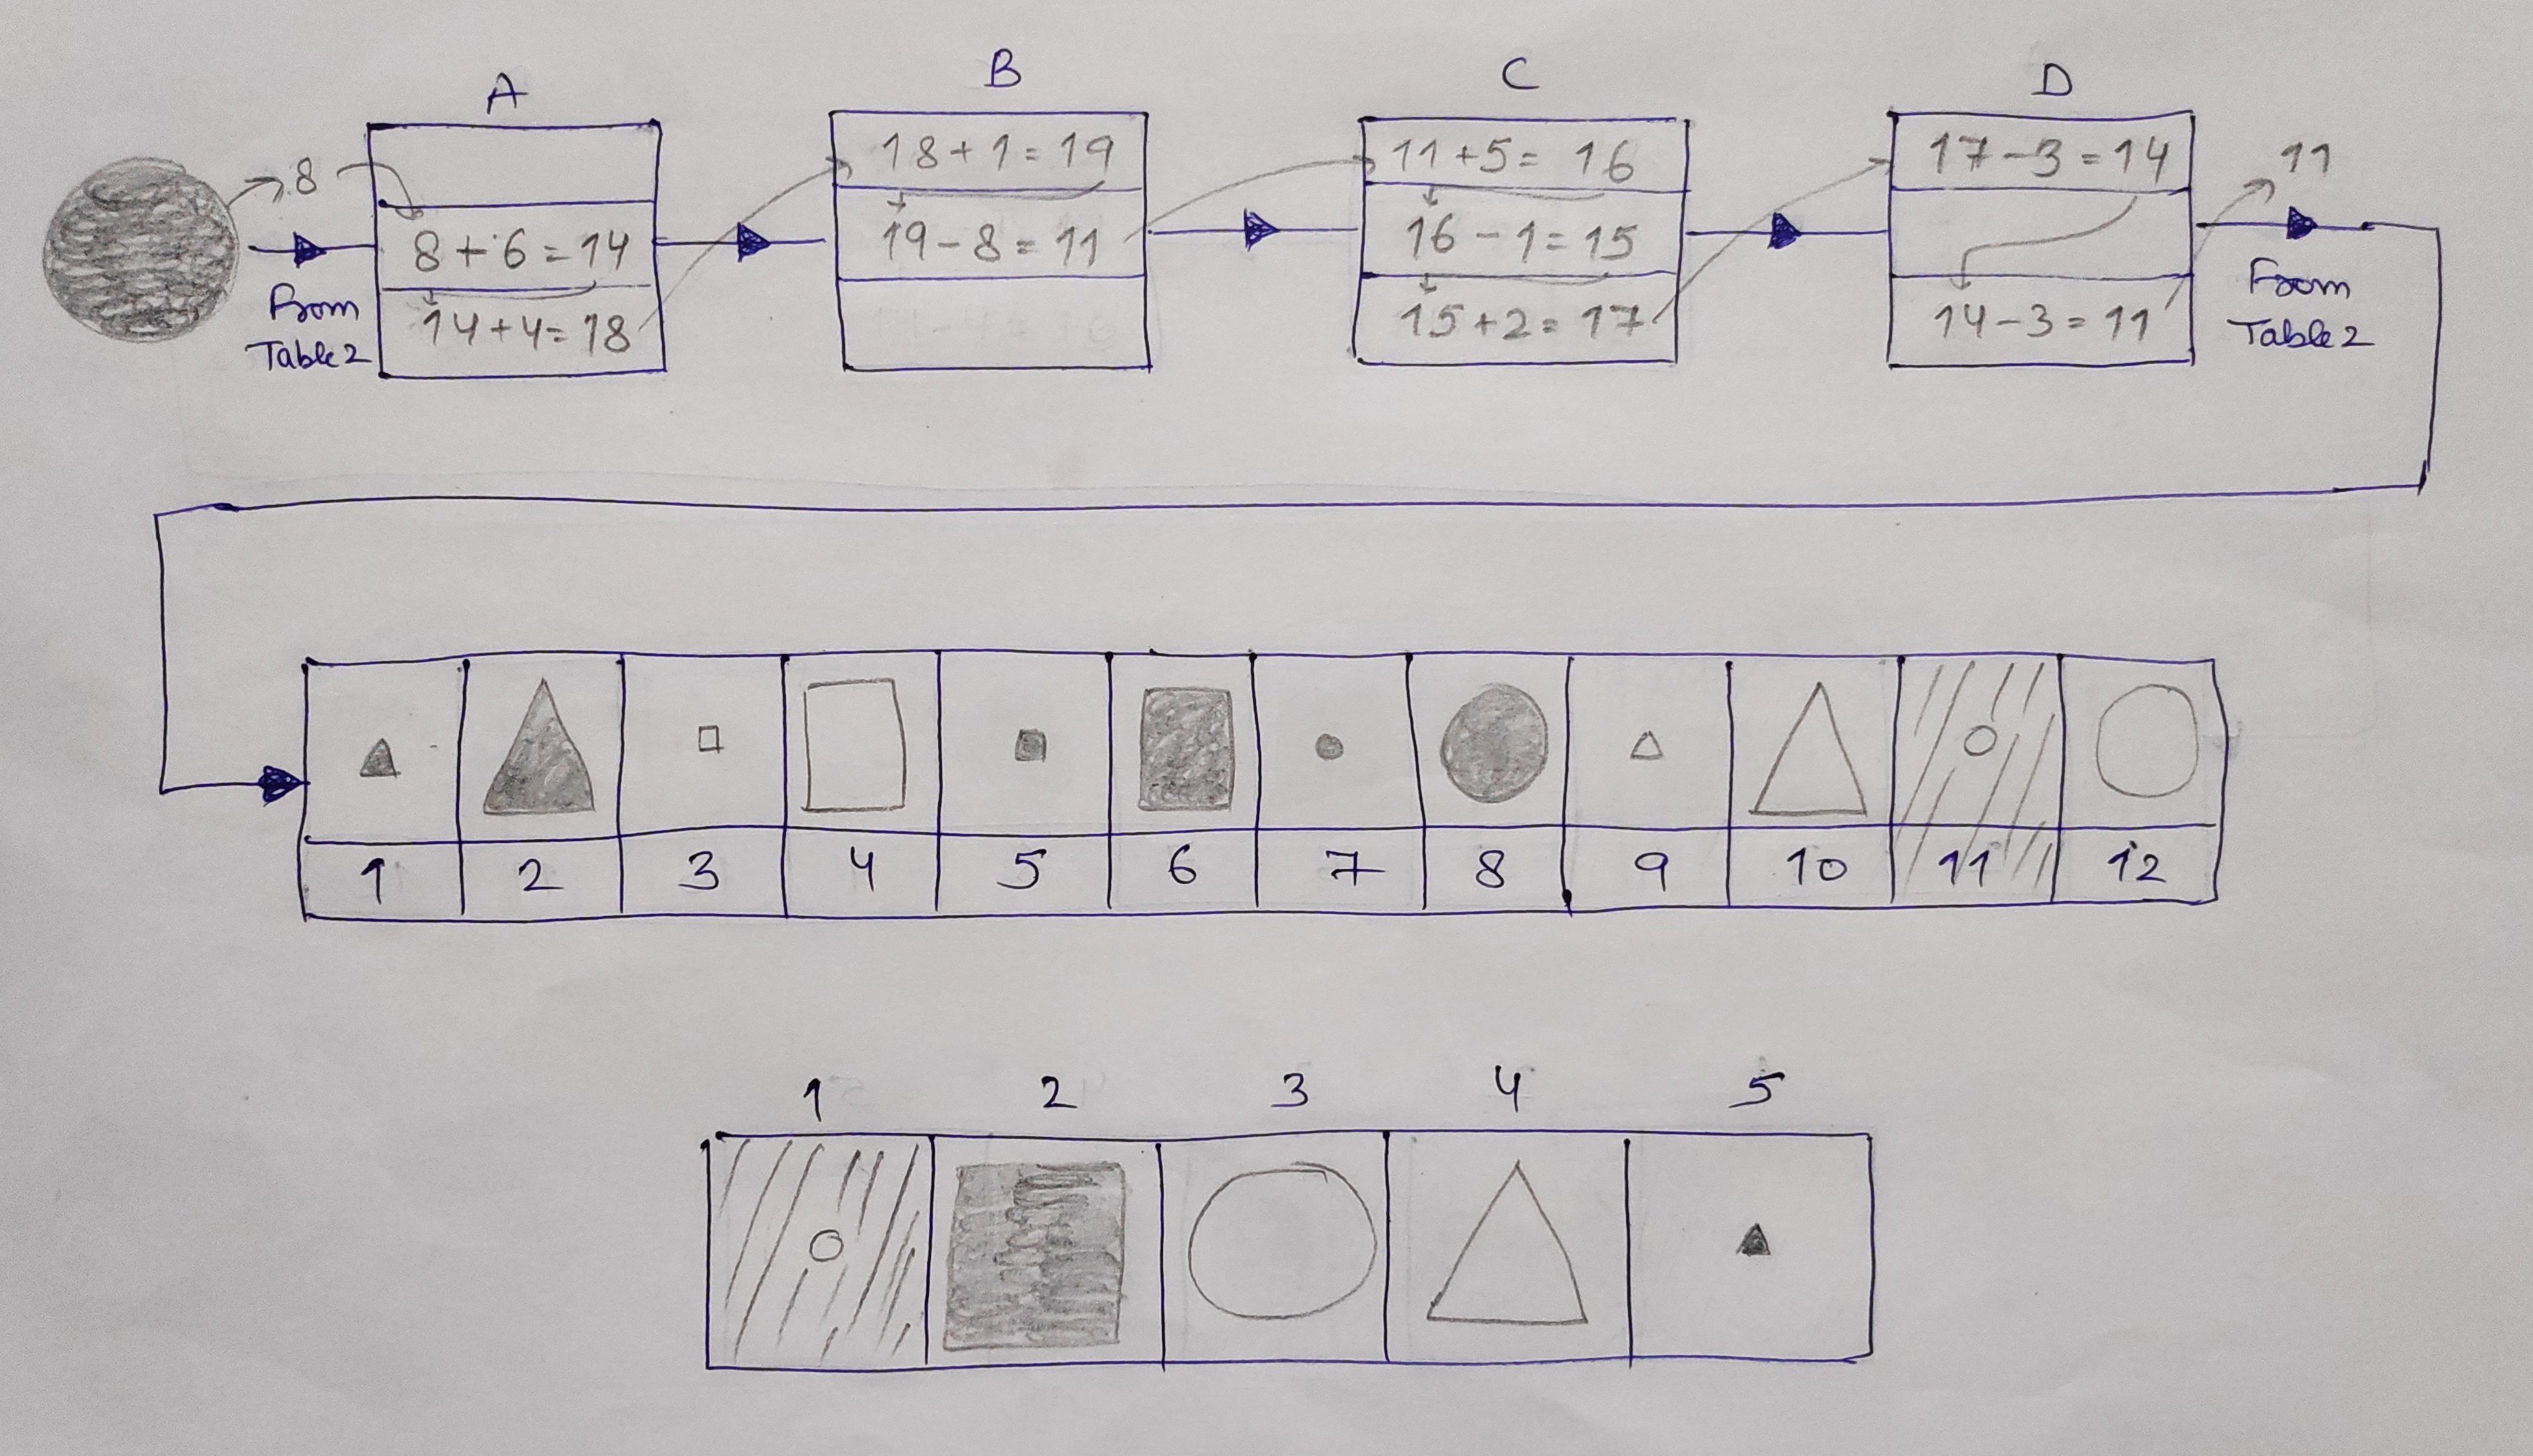 A
B
C
D
8
8 + 6 = 14
14 + 4 = 18
18 + 1 = 19
19 - 8 = 11
11 + 5 = 16
16 - 1 = 15
15 + 2 = 17
17 - 3 = 14
14 - 3 = 11
11
From
Table 2
From
Table 2
1 2 3 4 5 6 7 8 9 10 11 12
1 2 3 4 5